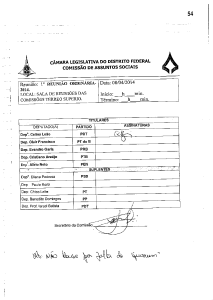 54
CÂMARA LEGISLATIVA DO DISTRITO FEDERAL
COMISSÃO DE ASSUNTOS SOCIAIS
Reunião: 1ª REUNIÃO ORDINÁRIA-2014. Data: 08/04/2014
LOCAL: SALA DE REUNIÕES DAS COMISSÕES-TÉRREO SUPERIO. Início: h min.
Término: h min.
TITULARES
DEPUTADO(A) PARTIDO ASSINATURAS
Depª. Celina Leão PDT
Dep. Olair Francisco PT do B
Dep. Evandro Garla PRB
Dep. Cristiano Araújo PTB
Dep. Aylton PEN
SUPLENTES
Depª. Eliana Pedrosa PSD
Dep. Paulo Roriz
Dep. Chico Leite PT
Dep. Benedito Domingos PP
Dep. Prof. Israel Batista
Secretário da Comissão
não houve por falta de quorum